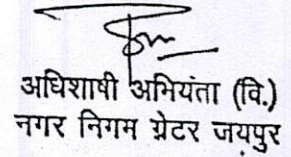 अधिशाषी अभियंता (वि.)
नगर निगम ग्रेटर जयपुर